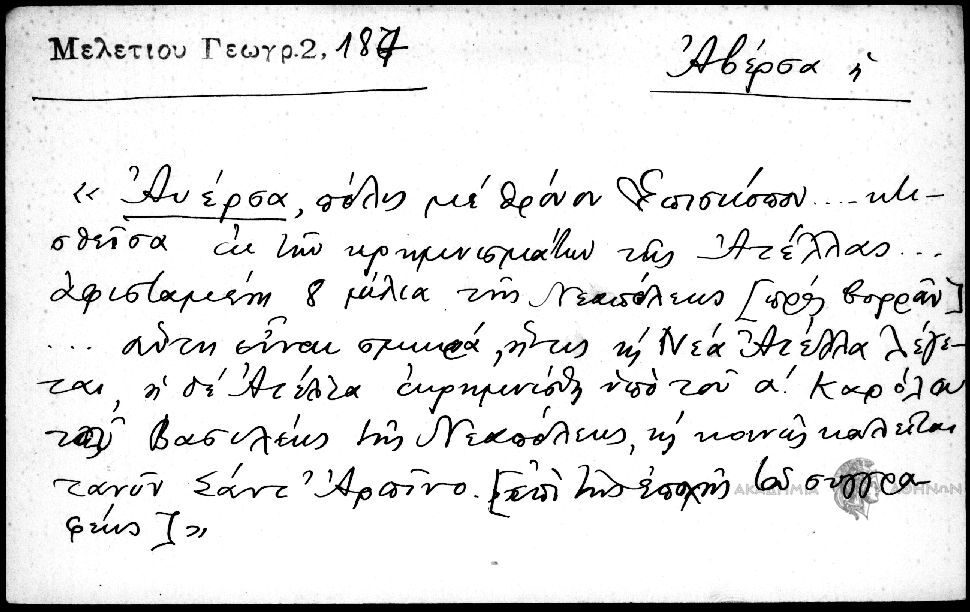 Μελετιου Γεωγρ.2, 187
Ἀβέρσα ἡ
« Ἀυέρσα, πόλις μὲ θρόνον Ἐπισκόπου .... κτι-
σθεῖσα ἐκ τῶν κρημνισμάτων τῆς Ἀτέλλας ...
ἀφισταμένη 8 μίλια τῆς Νεαπόλεως [πρὸς βορρᾶν]
... αὕτη εἶναι σμικρά, ἥτις κὴ Νέα Ἀτέλλα λέγε-
ται, ἡ δὲ Ἀτέλλα ἐκρημνίσθη ὑπὸ τοῦ α΄. Καρόλου
τοῦ Βασιλέως τῆς Νεαπόλεως, κὴ κοινῶς καλεῖται
τανῦν Σάντ Ἀρπῖνο. [ἐπὶ τῆς ἐποχῆς τοῦ συγγρα-
φέως]»
ΑΚΑΔΗΜΙΑ ΑΘΗΝΩΝ